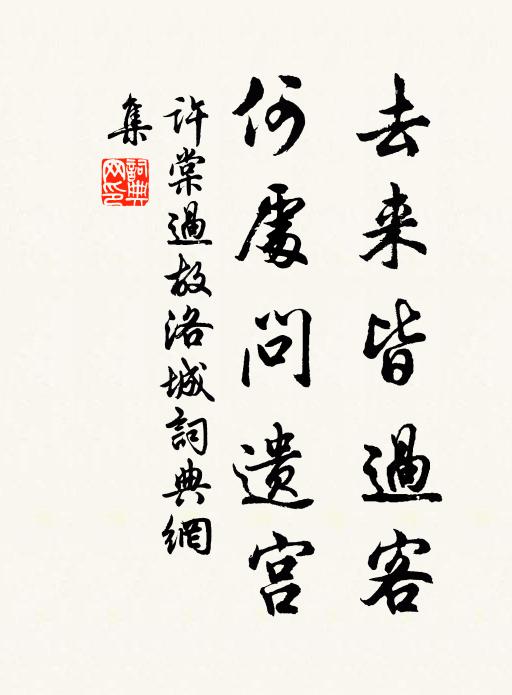 去来皆過客
何處問遺宫
許棠過故洛城詞典網
集
詞典網印